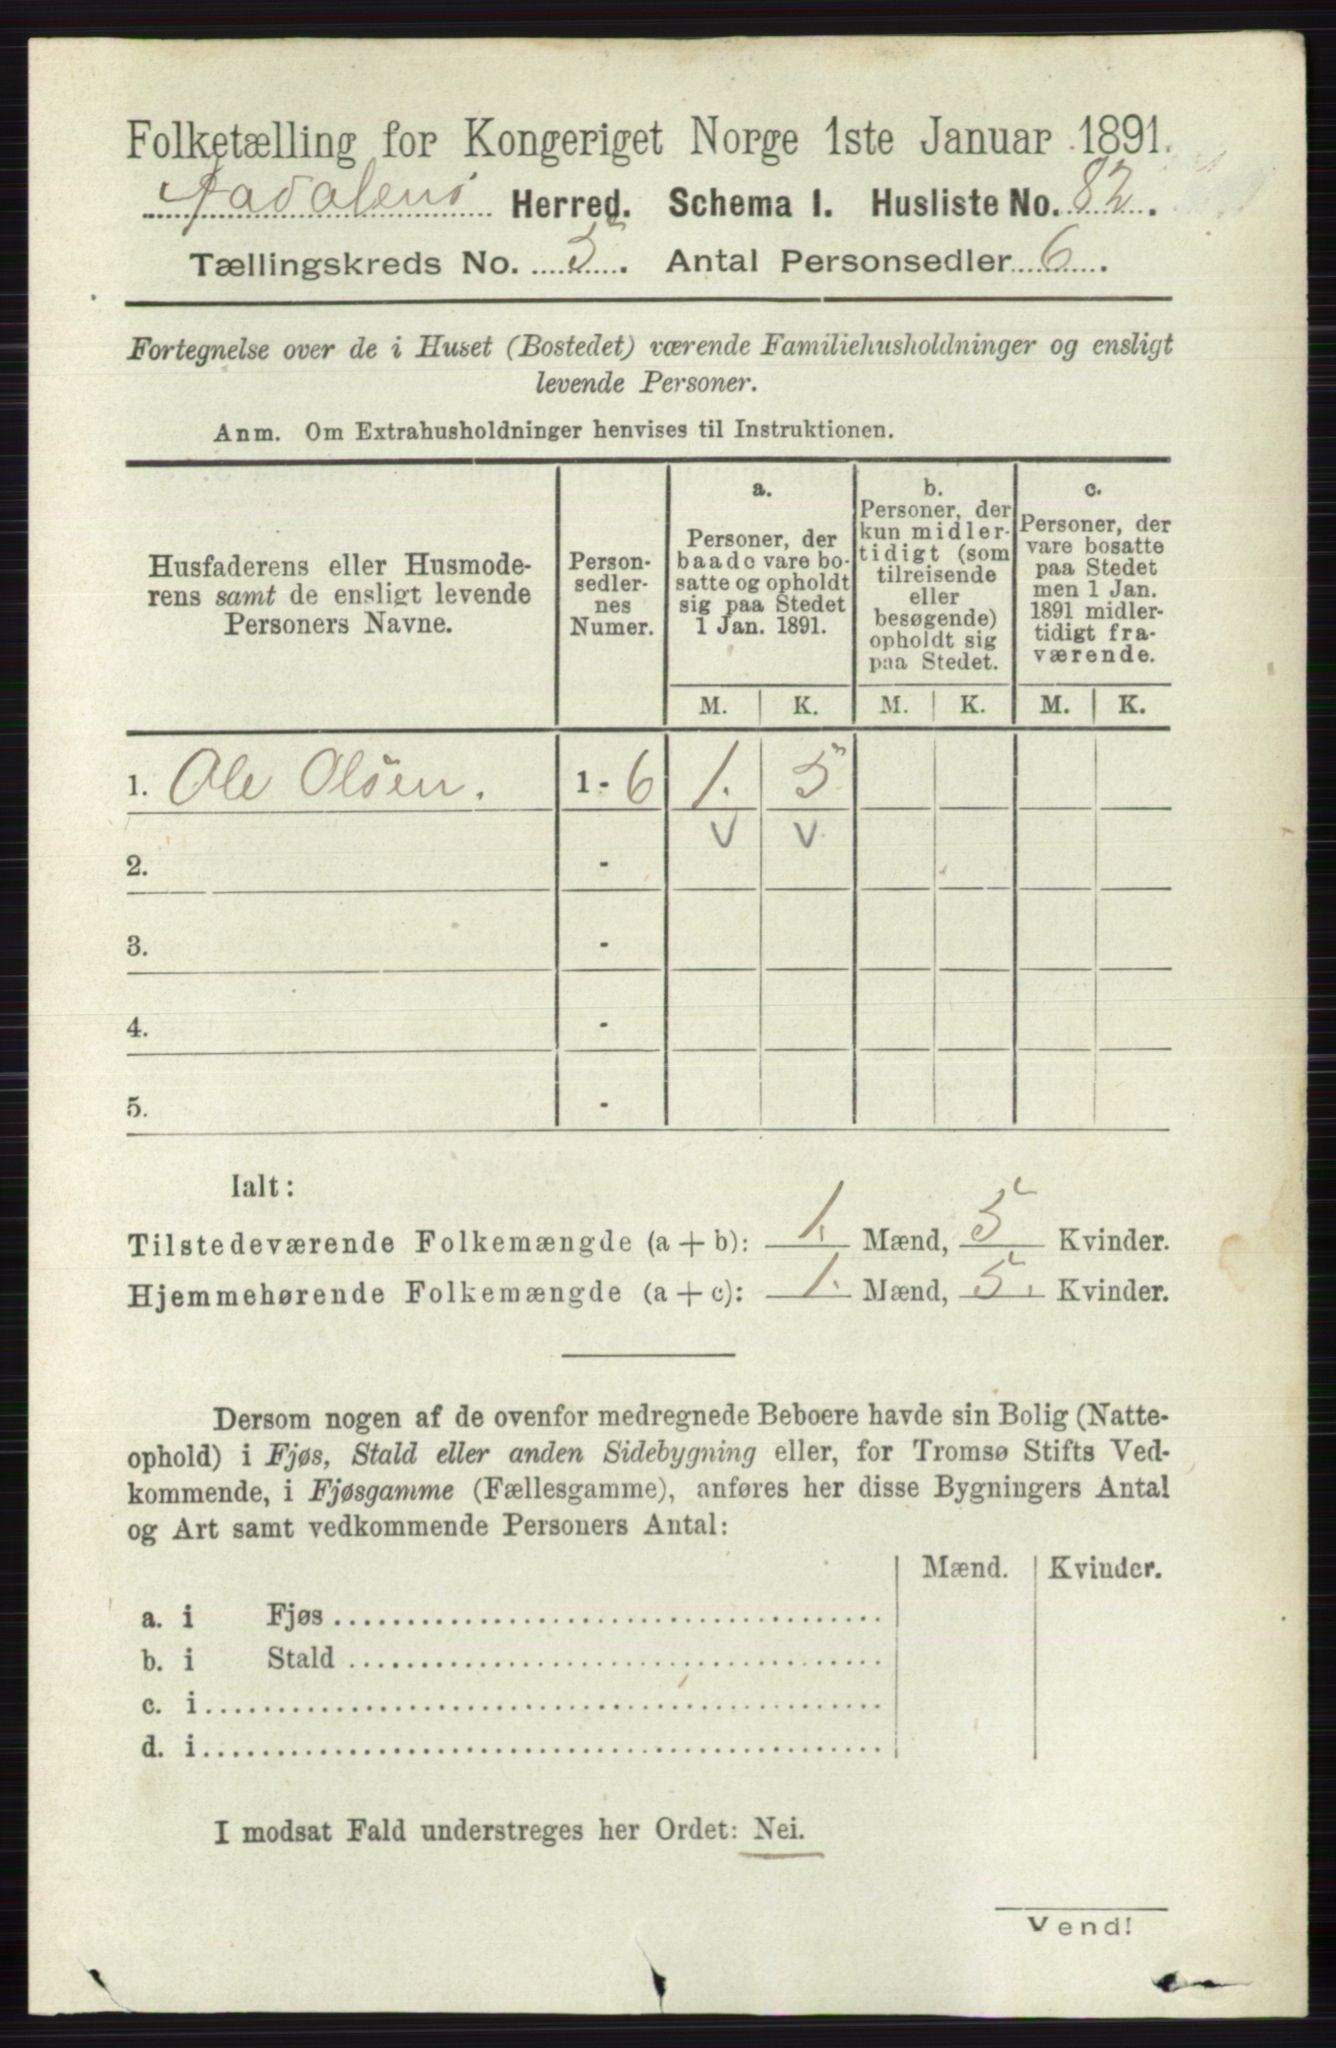 Folketælling for Kongeriget Norge 1ste Januar 1891.
Aadalens Herred. Schema I. Husliste No. 82.
Tællingskreds No. 5. Antal Personsedler 6.
Fortegnelse over de i Huset (Bostedet) værende Familiehusholdninger og ensligt
levende Personer.
Anm. Om Extrahusholdninger henvises til Instruktionen.
Husfaderens eller Husmode-
rens samt de ensligt levende
Personers Navne.
Person-
sedler-
nes
Numer.
a.
Personer, der
baade vare bo-
satte og opholdt
sig paa Stedet
1 Jan. 1891.
b.
Personer, der
kun midler-
tidigt (som
tilreisende
eller
besøgende)
opholdt sig
paa Stedet.
c.
Personer, der
vare bosatte
paa Stedet
men 1 Jan.
1891 midler-
tidigt fra-
værende.
M. K. M. K. M. K.
1. Ole Olsen. 1-6 1. 5
v v
2. -
3. -
4. -
5. -
Ialt:
Tilstedeværende Folkemængde (a + b): 1. Mænd, 5 Kvinder.
Hjemmehørende Folkemængde (a + c): 1. Mænd, 5. Kvinder.
Dersom nogen af de ovenfor medregnede Beboere havde sin Bolig (Natte-
ophold) i Fjøs, Stald eller anden Sidebygning eller, for Tromsø Stifts Ved-
kommende, i Fjøsgamme (Fællesgamme), anføres her disse Bygningers Antal
og Art samt vedkommende Personers Antal:
Mænd. Kvinder.
a. i Fjøs
b. i Stald
c. i
d. i
I modsat Fald understreges her Ordet: Nei.
Vend!